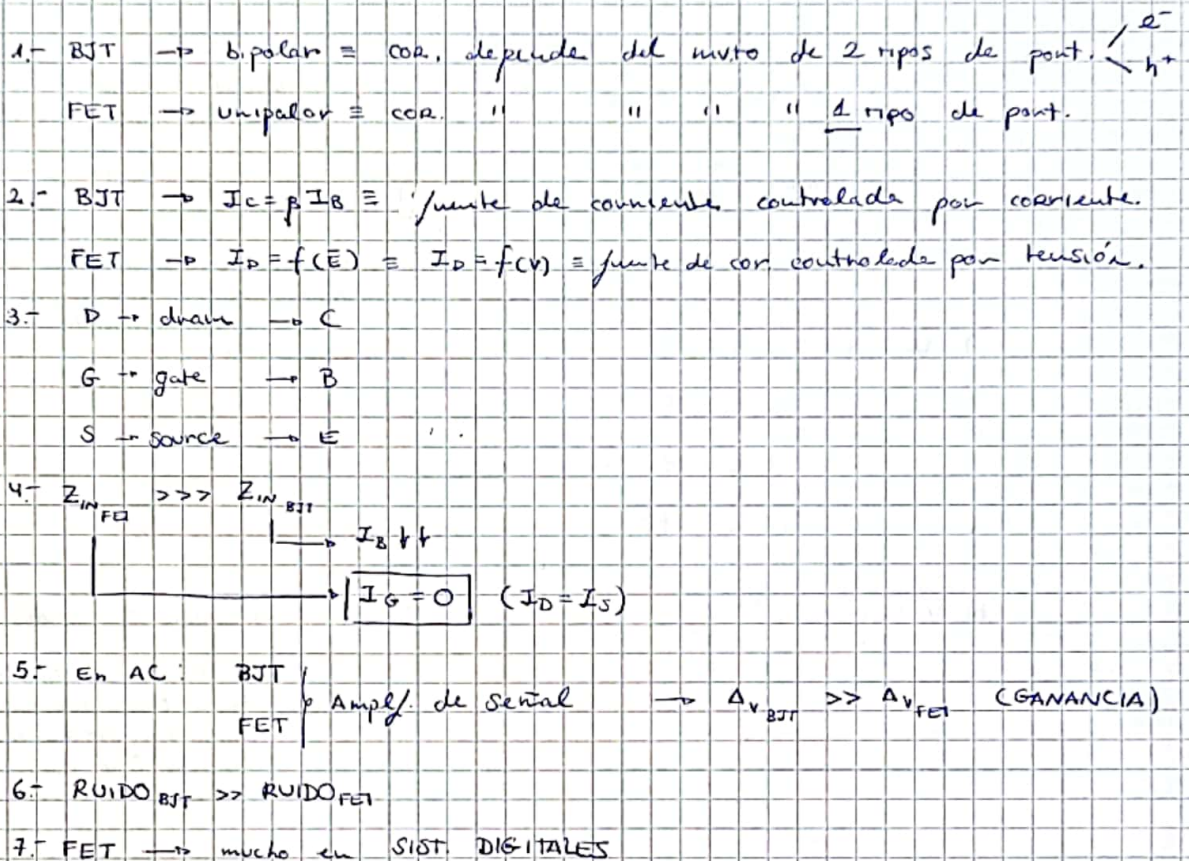 1.- BJT → bipolar ≡ cor. depende del mvto de 2 tipos de port. e⁻ h⁺
FET → unipolar ≡ cor. " " " " 1 tipo de port.
2.- BJT → Ic = β I_B ≡ fuente de corriente controlada por corriente.
FET → I_D = f(Ē) ≡ I_D = f(V) ≡ fuente de cor. controlada por tensión.
3.- D → drain → C
G → gate → B
S → source → E
4.- Z_IN FET >>> Z_IN BJT
I_B ↓↓
I_G = 0 (I_D = I_S)
5.- En AC: BJT
FET
Ampl/. de señal → Δ_V BJT >> Δ_V FET (GANANCIA)
6.- RUIDO BJT >> RUIDO FET
7.- FET → mucho en SIST. DIGITALES